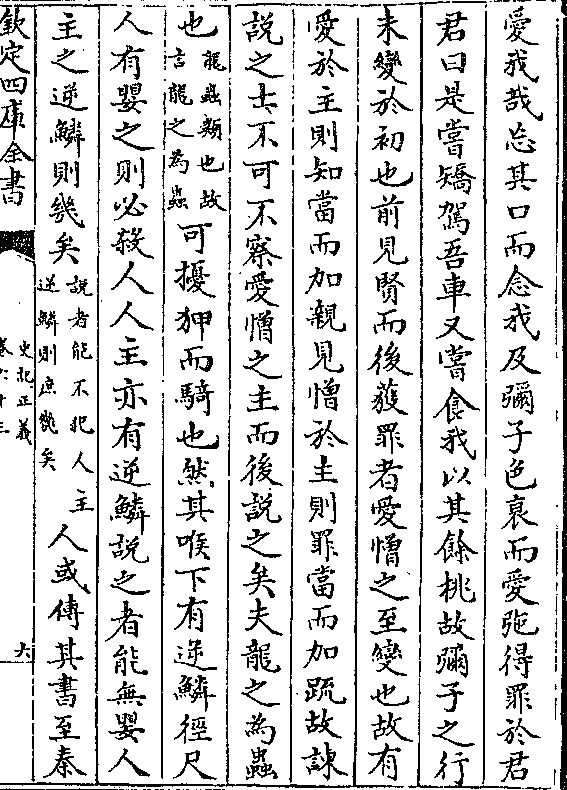 愛我哉忘其口而念我及彌子色衰而愛弛得罪於君
君曰是嘗矯駕吾車又嘗食我以其餘桃故彌子之行
未變於初也前見賢而後獲罪者愛憎之至變也故有
愛於主則知當而加親見憎於主則罪當而加疏故諫
說之士不可不察愛憎之主而後說之矣夫龍之為蟲
也龍蟲類也故言龍之為蟲可擾狎而騎也然其喉下有逆鱗徑尺
人有嬰之則必殺人人主亦有逆鱗說之者能無嬰人
主之逆鱗則幾矣說者能不犯人主逆鱗則庶幾矣人或傳其書至秦
欽定四庫全書
史記正義
卷六十三
六